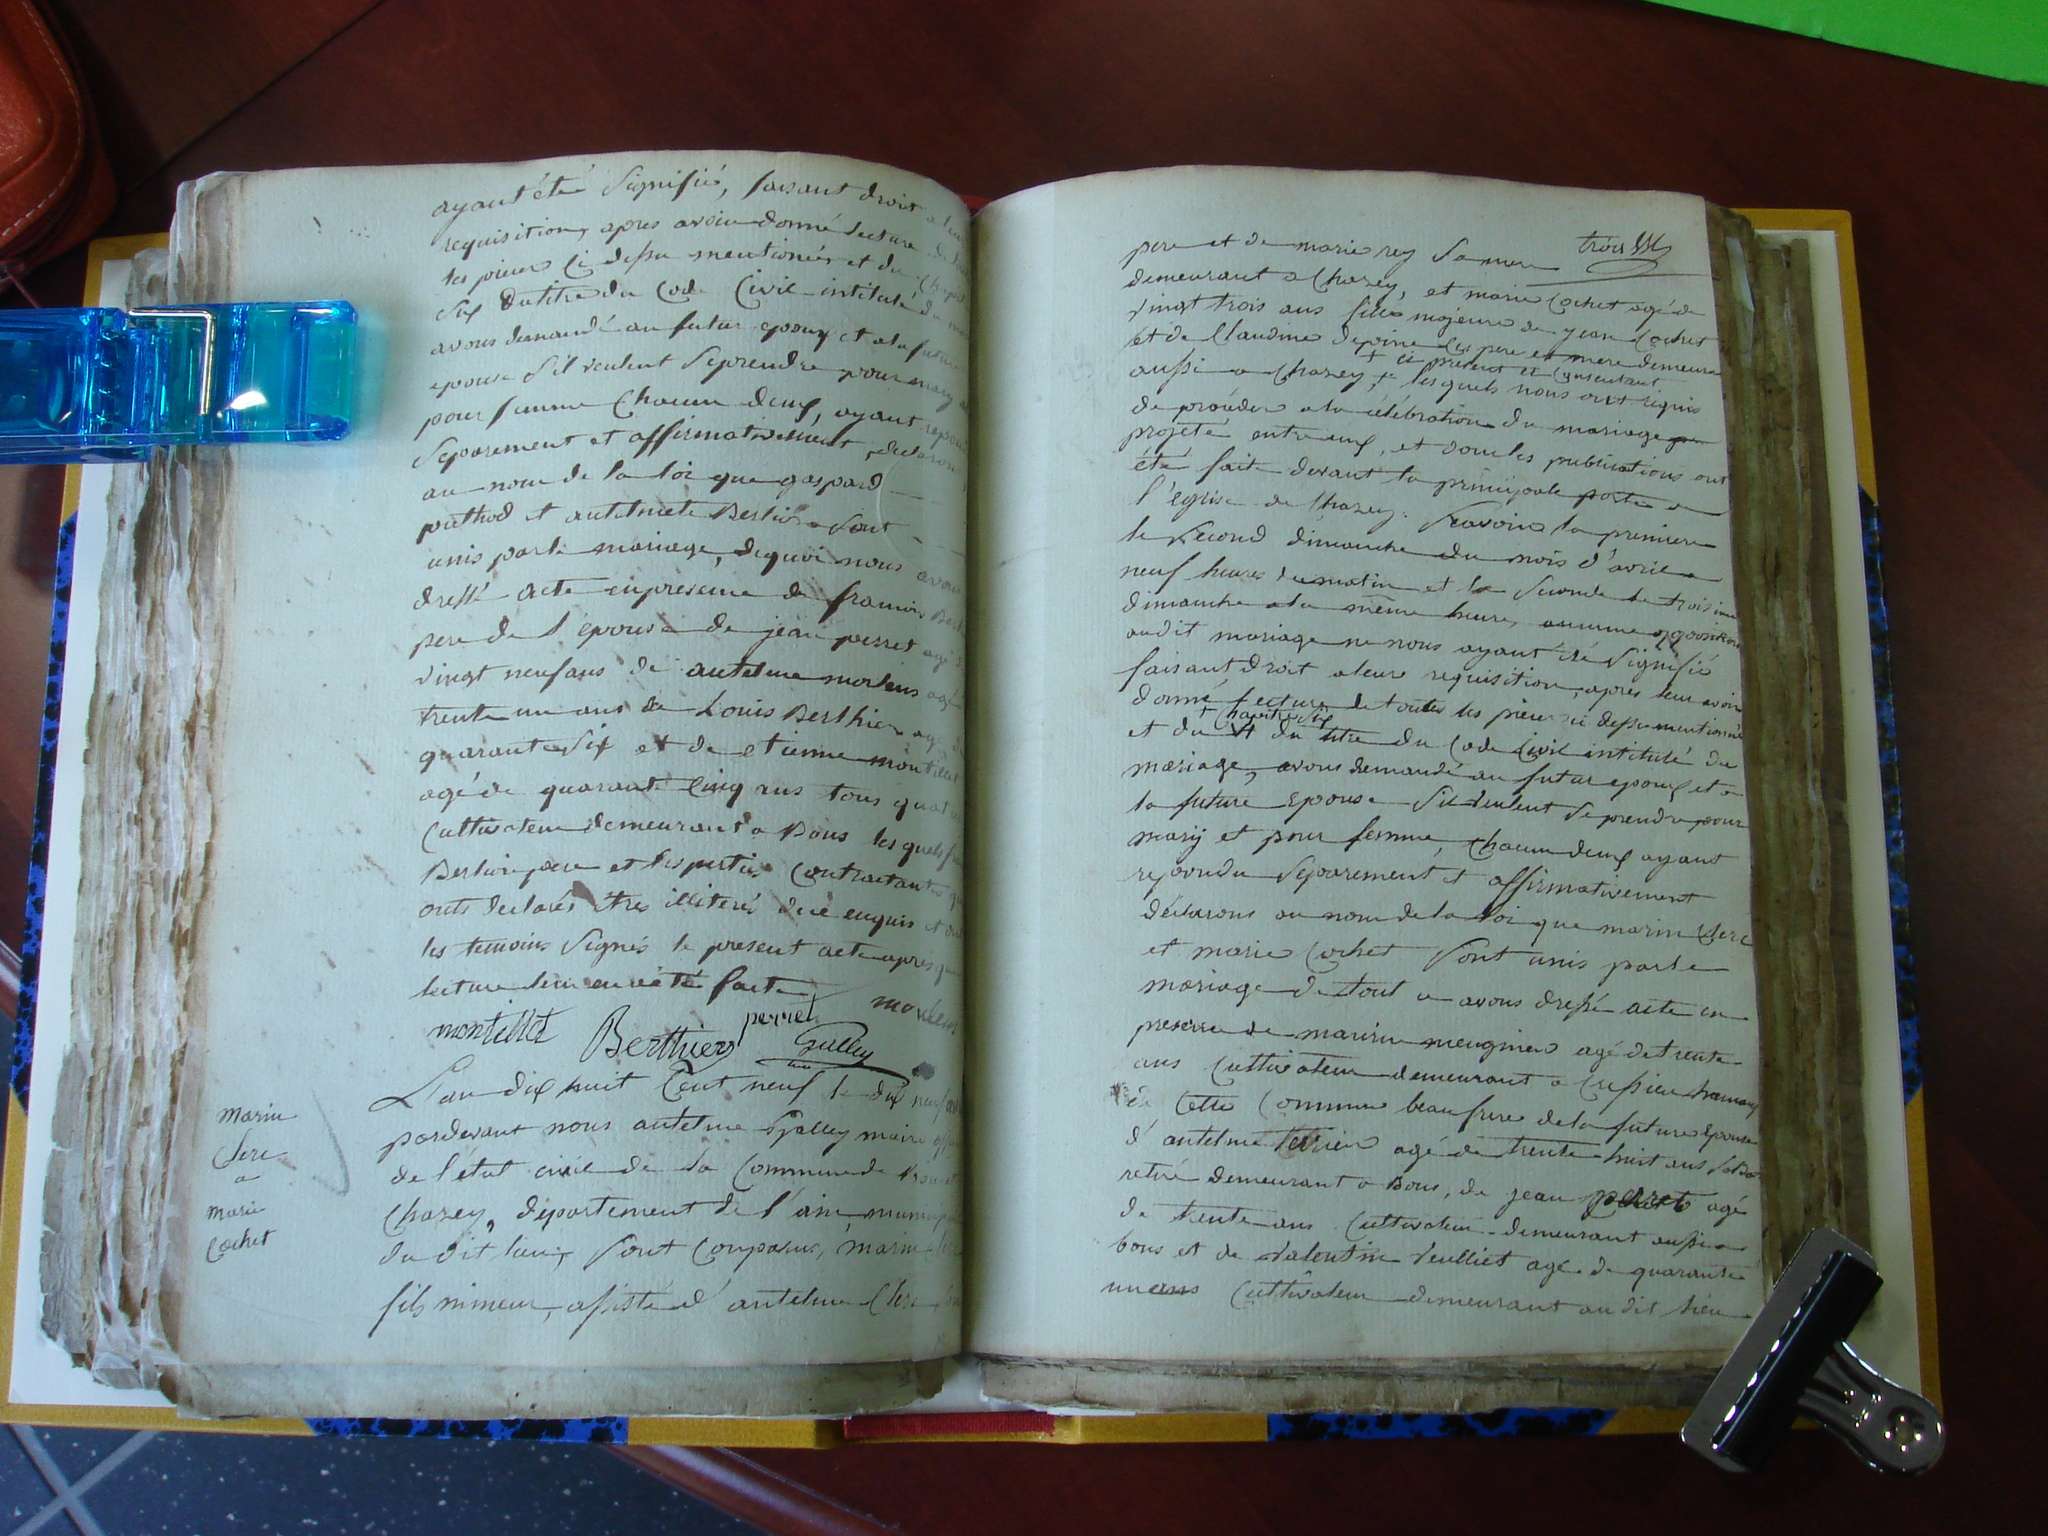 ayant été signifié, faisant droit a leur
requisition, apres avoir donné lecture de
les pieces ci dessu mentionnés et du chapitre
six du titre du Code Civil intitulé du
avons demandé au futur epoux et a la future
epouse s'il veulent se prendre pour mary
pour femme chacun deux, ayant repondu
separement et affirmativement, declarons
au nom de la loi que gaspard
et antelmete Berlier sont
unis par le mariage, de quoi nous avons
dressé acte en presence de francois
pere de l'épouse de jean perret agé
vingt neuf ans de antelme morlens agé
trente un ans de Louis Berthier agé
quarante six et de etienne montillet
agé de quarante Cinq ans tous quatre
Cultivateur demeurant a Bons les quels
Berlier pere et les parties Contractantes
onts declarés étres illiterés de ce enquis et
les temoins signés le present acte apres que
lecture leur en a été faite
montillet Berthier perret Galley
L'an dix huit Cent neuf le dix neuf
pardevant nous antelme Galley maire
de l'état civil de la Commune de
Chazey, département de l'ain,
du dit lieu, sont Comparus, marin
fils mineur, assisté d'antelme Clerc
marin
Clerc
a
marie
Cochet
trois
pere et de marie rey sa mere
demeurant a Chazey, et marie Cochet agé de
vingt trois ans fille majeure de jean Cochet
et de Claudine pere et mere demeurant
+ ci present et Consentant
aussi a Chazey + lesquels nous ont requis
de proceder a la célébration du mariage
projeté entre eux, et dont les publications ont
été fait devant la principale porte de
l'église de Chazey. Scavoir la premiere
le second dimanche du mois d'avril a
neuf heures du matin et la seconde le troisieme
dimanche a la même heure, aucune opposition
audit mariage ne nous ayant été signifié
faisant droit a leur requisition, apres leur avoir
donné lecture de toutes les pieces ci dessu mentionné
+ Chapitre six
et du du titre du Code Civil intitulé du
mariage, avons demandé au futur epoux et a
la future Epouse s'il veulent se prendre pour
mary et pour femme, chacun deux ayant
repondu separement et affirmativement
déclarons au nom de la loi que marin Clerc
et marie Cochet sont unis par le
mariage de tout a avons dressé acte en
presence de meugnier agé de trente
ans Cultivateur demeurant a Cressieu
de Cette Commune beau frere de la future Epouse
d'antelme agé de trente huit ans
retiré demeurant a Bons, de jean perret agé
de trente ans Cultivateur demeurant aussi a
bons et de valentin veulliet agé de quarante
un ans Cultivateur demeurant au dit lieu